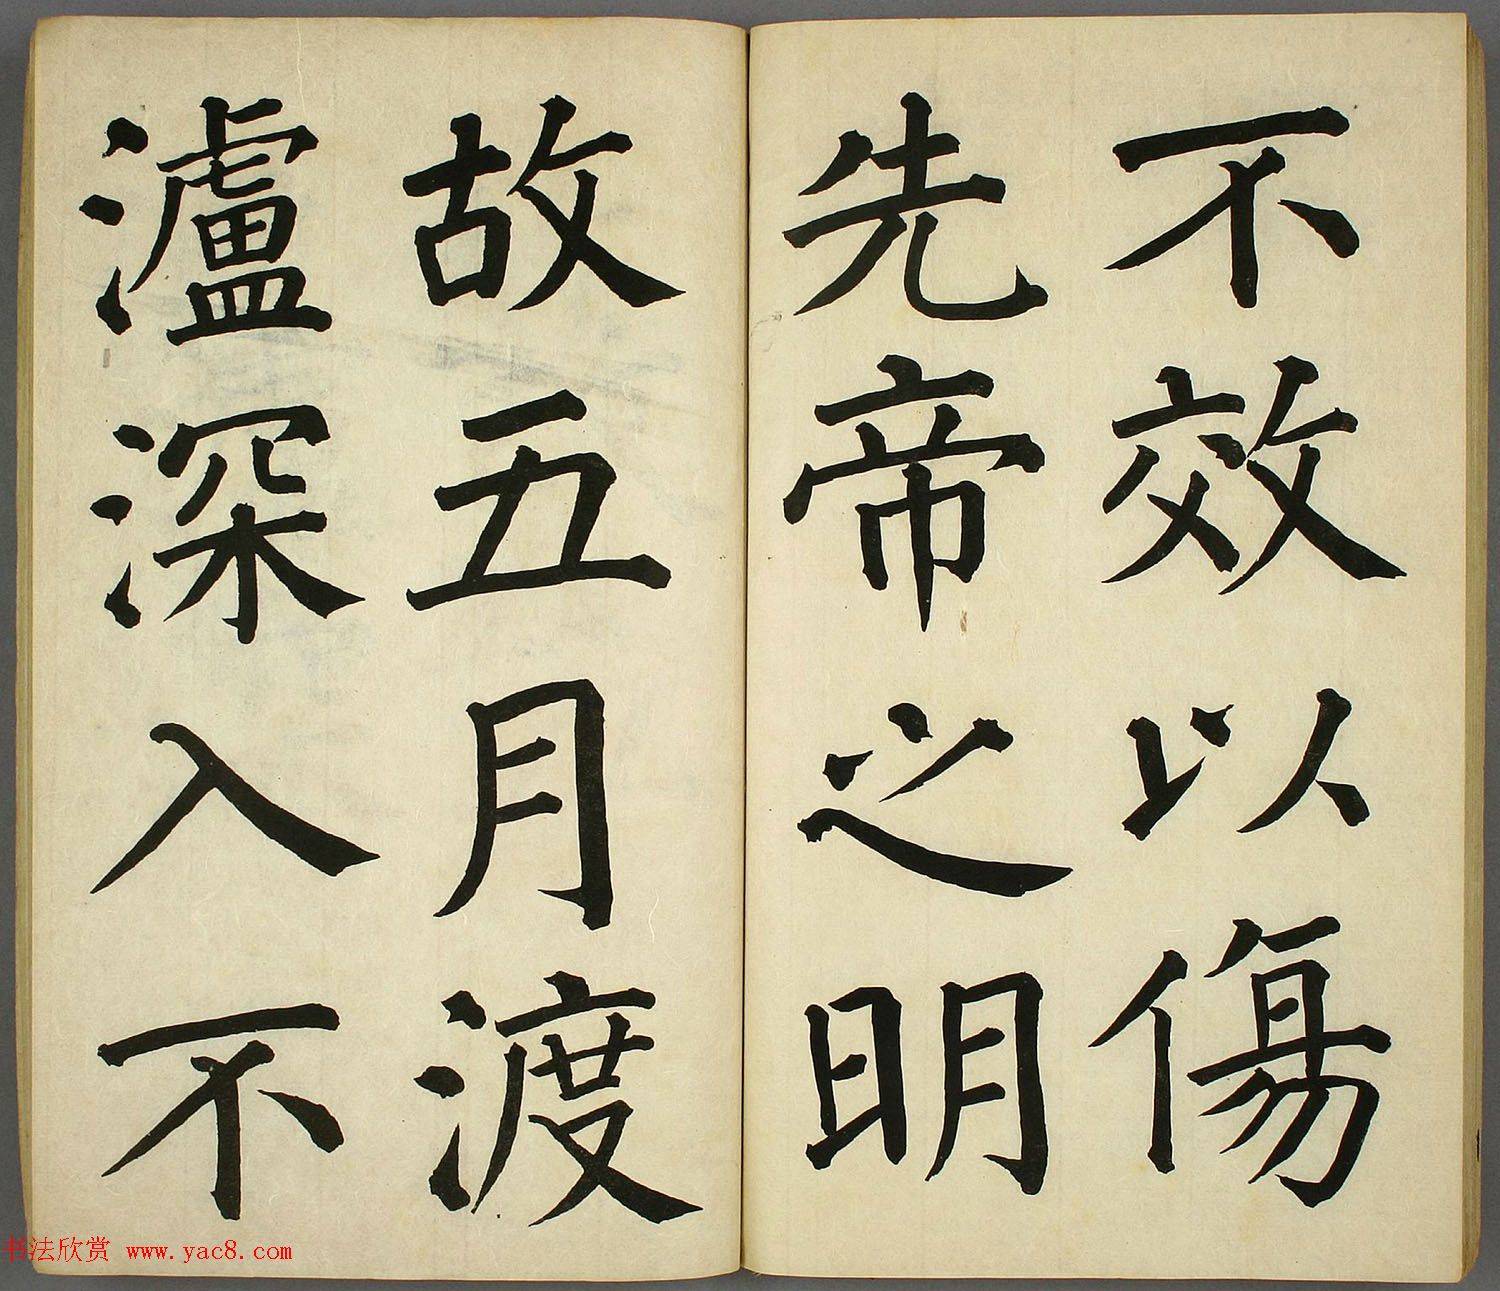 不效以傷
先帝之明
故五月渡
瀘深入不
书法欣赏 www.yac8.com